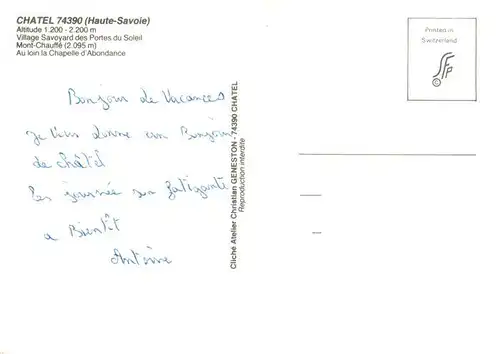 CHATEL 74390 (Haute-Savoie)
Altitude 1.200 - 2.200 m
Village Savoyard des Portes du Soleil
Mont-Chauffé (2.095 m)
Au loin la Chapelle d'Abondance
Bonjour de Vacances
je vous donne un Bonjour
de châtel
les journée son fatigante
a Bientôt
Antoine
Cliché Atelier Christian GENESTON - 74390 CHATEL
Reproduction interdite
Printed in
Switzerland
©